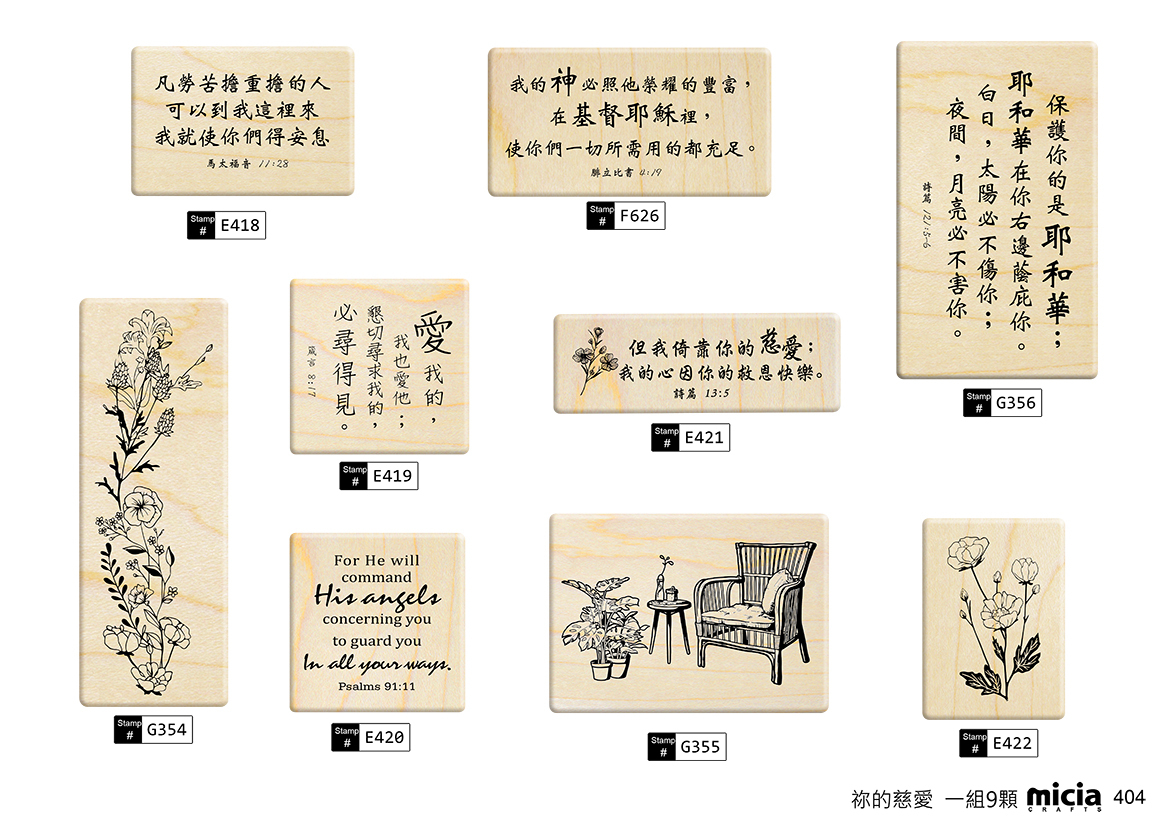 凡勞苦擔重擔的人
可以到我這裡來
我就使你們得安息
馬太福音 11:28
Stamp # E418
我的神必照他榮耀的豐富，
在基督耶穌裡，
使你們一切所需用的都充足。
腓立比書 4:19
Stamp # F626
保護你的是耶和華；
耶和華在你右邊蔭庇你。
白日，太陽必不傷你；
夜間，月亮必不害你。
詩篇 121:5-6
Stamp # G356
愛我的，
我也愛他；
懇切尋求我的，
必尋得見。
箴言 8:17
Stamp # E419
但我倚靠你的慈愛；
我的心因你的救恩快樂。
詩篇 13:5
Stamp # E421
Stamp # G354
For He will
command
His angels
concerning you
to guard you
In all your ways.
Psalms 91:11
Stamp # E420
Stamp # G355
Stamp # E422
祢的慈愛 一組9顆 micia CRAFTS 404